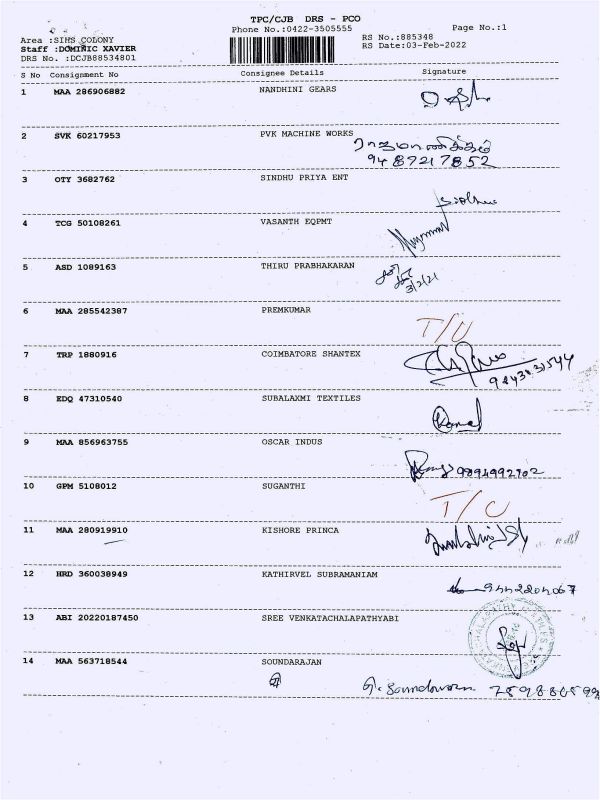 TPC/CJB DRS - PCO
Phone No.:0422-3505555
Page No.:1
Area :SIHS COLONY
Staff :DOMINIC XAVIER
DRS No. :DCJB88534801
RS No.:885348
RS Date:03-Feb-2022
S No Consignment No Consignee Details Signature
1 MAA 286906882 NANDHINI GEARS
2 SVK 60217953 PVK MACHINE WORKS
ராஜமாணிக்கம்
9487217852
3 OTY 3682762 SINDHU PRIYA ENT
4 TCG 50108261 VASANTH EQPMT
5 ASD 1089163 THIRU PRABHAKARAN
3/2/21
6 MAA 285542387 PREMKUMAR
T/U
7 TRP 1880916 COIMBATORE SHANTEX
8 EDQ 47310540 SUBALAXMI TEXTILES
9 MAA 856963755 OSCAR INDUS
10 GPM 5108012 SUGANTHI
T/C
11 MAA 280919910 KISHORE PRINCA
12 HRD 360038949 KATHIRVEL SUBRAMANIAM
13 ABI 20220187450 SREE VENKATACHALAPATHYABI
14 MAA 563718544 SOUNDARAJAN